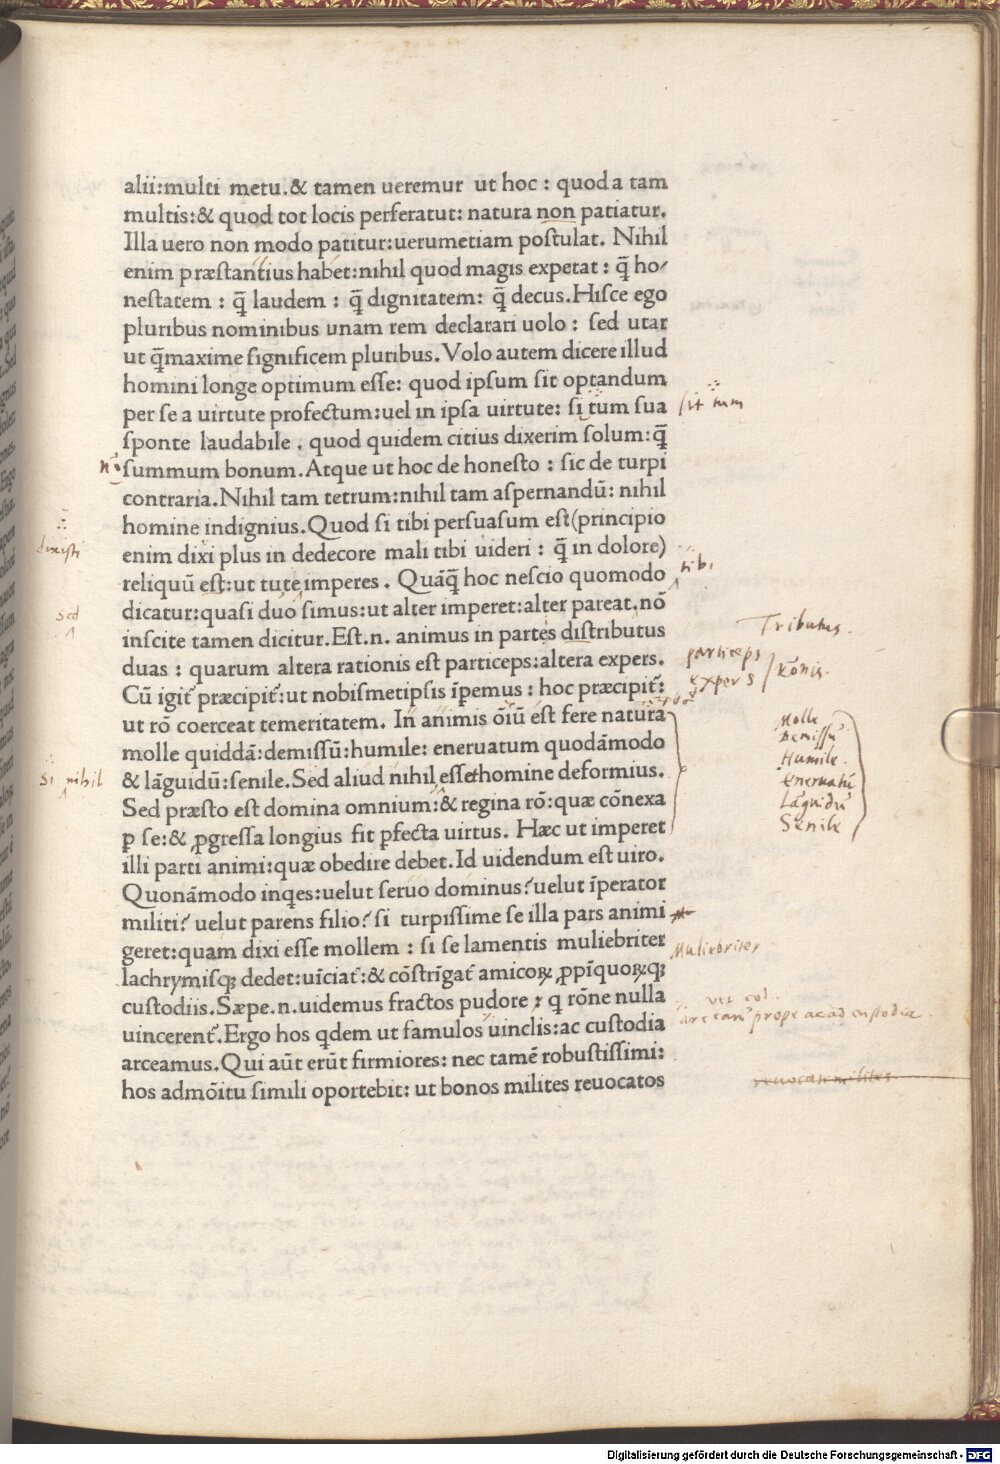 alii:multi metu.& tamen ueremur ut hoc : quod a tam
multis:& quod tot locis perferatut: natura non patiatur.
Illa uero non modo patitur:uerumetiam poſtulat. Nihil
enim præſtantius habet:nihil quod magis expetat : q̃ ho⸗
neſtatem : q̃ laudem : q̃ dignitatem: q̃ decus.Hiſce ego
pluribus nominibus unam rem declarari uolo : ſed utar
ut q̃maxime ſignificem pluribus. Volo autem dicere illud
homini longe optimum eſſe: quod ipſum ſit optandum
per ſe a uirtute profectum:uel in ipſa uirtute: ſi tum ſua
ſit tum
ſponte laudabile . quod quidem citius dixerim ſolum:q̃
ſummum bonum. Atque ut hoc de honeſto : ſic de turpi
contraria. Nihil tam tetrum:nihil tam aſpernandũ: nihil
homine indignius. Quod ſi tibi perſuaſum eſt(principio
dixisti
enim dixi plus in dedecore mali tibi uideri : q̃ in dolore)
reliquũ eſt:ut tute imperes . Quãq̃ hoc neſcio quomodo
tibi
dicatur:quaſi duo ſimus:ut alter imperet:alter pareat.nõ
sed
inſcite tamen dicitur.Eſt.n. animus in partes diſtributus
Tributus.
duas : quarum altera rationis eſt particeps:altera expers.
particeps
expers
rõnis.
Cũ igit᷑ præcipit᷑:ut nobiſmetipſis ĩpemus : hoc præcipit᷑:
ut rõ coerceat temeritatem. In animis oĩũ eſt fere natura
molle quiddã:demiſſũ:humile: eneruatum quodãmodo
Molle
Demissũ
Humile.
Eneruatũ
Lãguidũ
Senile
& lãguidũ:ſenile. Sed aliud nihil eſſet homine deformius.
Si nihil
Sed præſto eſt domina omnium:& regina rõ:quæ cõnexa
ꝑ ſe:& ꝓgreſſa longius fit ꝑfecta uirtus. Hæc ut imperet
illi parti animi:quæ obedire debet. Id uidendum eſt uiro.
Quonãmodo inqes:uelut ſeruo dominus? uelut ĩperator
militi? uelut parens filio? ſi turpiſſime ſe illa pars animi
geret:quam dixi eſſe mollem : ſi ſe lamentis muliebriter
Muliebriter
lachrymiſq; dedet:uĩciat᷑:& cõſtrĩgat᷑ amicoꝝ ꝓpĩquoꝝq;
cuſtodiis. Sæpe.n.uidemus fractos pudore ꝛ q rõne nulla
uet. cod.
arceant prope ac ad custodia
uincerent᷑. Ergo hos qdem ut famulos uinclis:ac cuſtodia
arceamus. Qui aũt erũt firmiores: nec tamẽ robuſtiſſimi:
hos admõitu ſimili oportebit: ut bonos milites reuocatos
reuocati milites
Digitalisierung gefördert durch die Deutsche Forschungsgemeinschaft - DFG